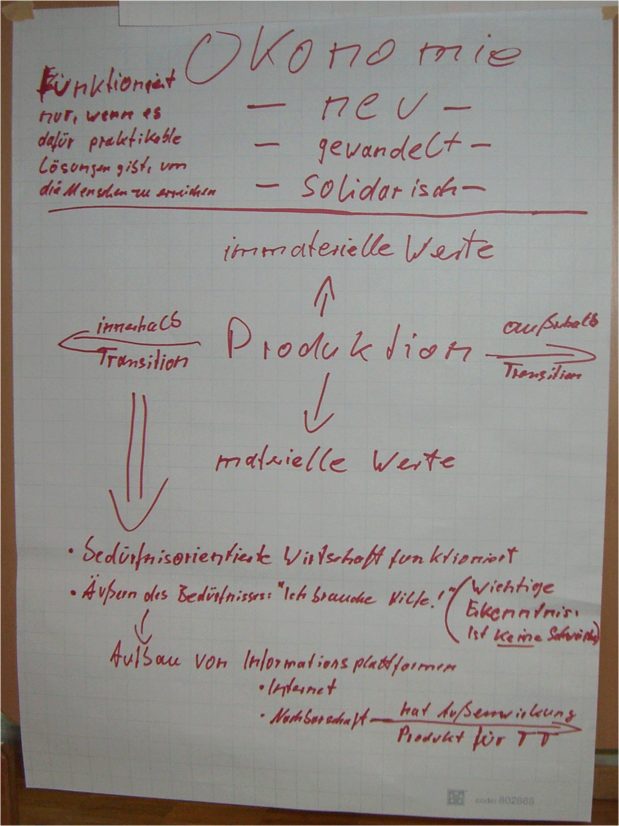 Ökonomie
Funktioniert
nur, wenn es
dafür praktikable
Lösungen gibt, um
die Menschen zu erreichen
– neu –
– gewandelt –
– solidarisch –
immaterielle Werte
innerhalb
Transition
Produktion
außerhalb
Transition
materielle Werte
• Bedürfnisorientierte Wirtschaft funktioniert
• Äußern des Bedürfnisses: "Ich brauche Hilfe!"
(Wichtige
Erkenntnis:
ist keine Schwäche)
Aufbau von Informationsplattformen
• Internet
• Nachbarschaft
hat Außenwirkung
Produkt für TT
code: 802668